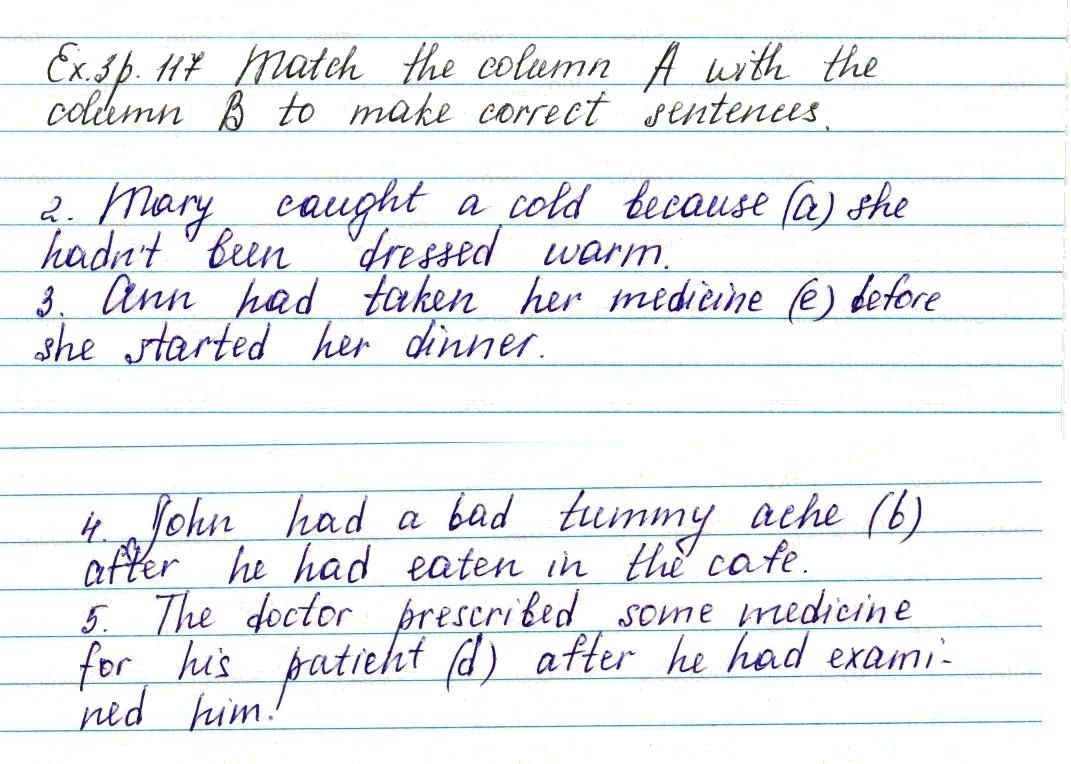 Ex.3p. 117 Match the column A with the
column B to make correct sentences.
2. Mary caught a cold because (a) she
hadn't been dressed warm.
3. Ann had taken her medicine (e) before
she started her dinner.
4. John had a bad tummy ache (b)
after he had eaten in the cafe.
5. The doctor prescribed some medicine
for his patient (d) after he had exami-
ned him.